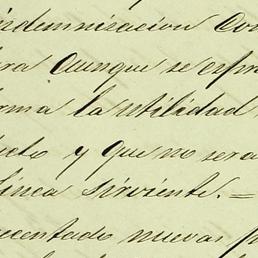 indemnizacion Con
ra Aunque se espre
orma la utilidad
ueto y que no sera
Linea sirviente. =
ecentado nuevas p